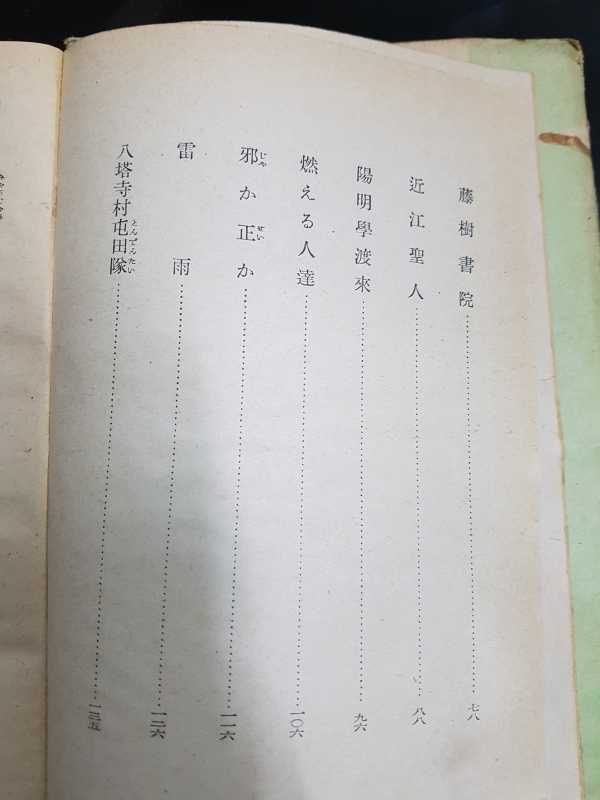 藤樹書院……七八
近江聖人……八八
陽明學渡來……九六
燃える人達……一〇六
邪か正か……一一六
じや せい
雷雨……一二六
八塔寺村屯田隊……一三五
とんでんたい